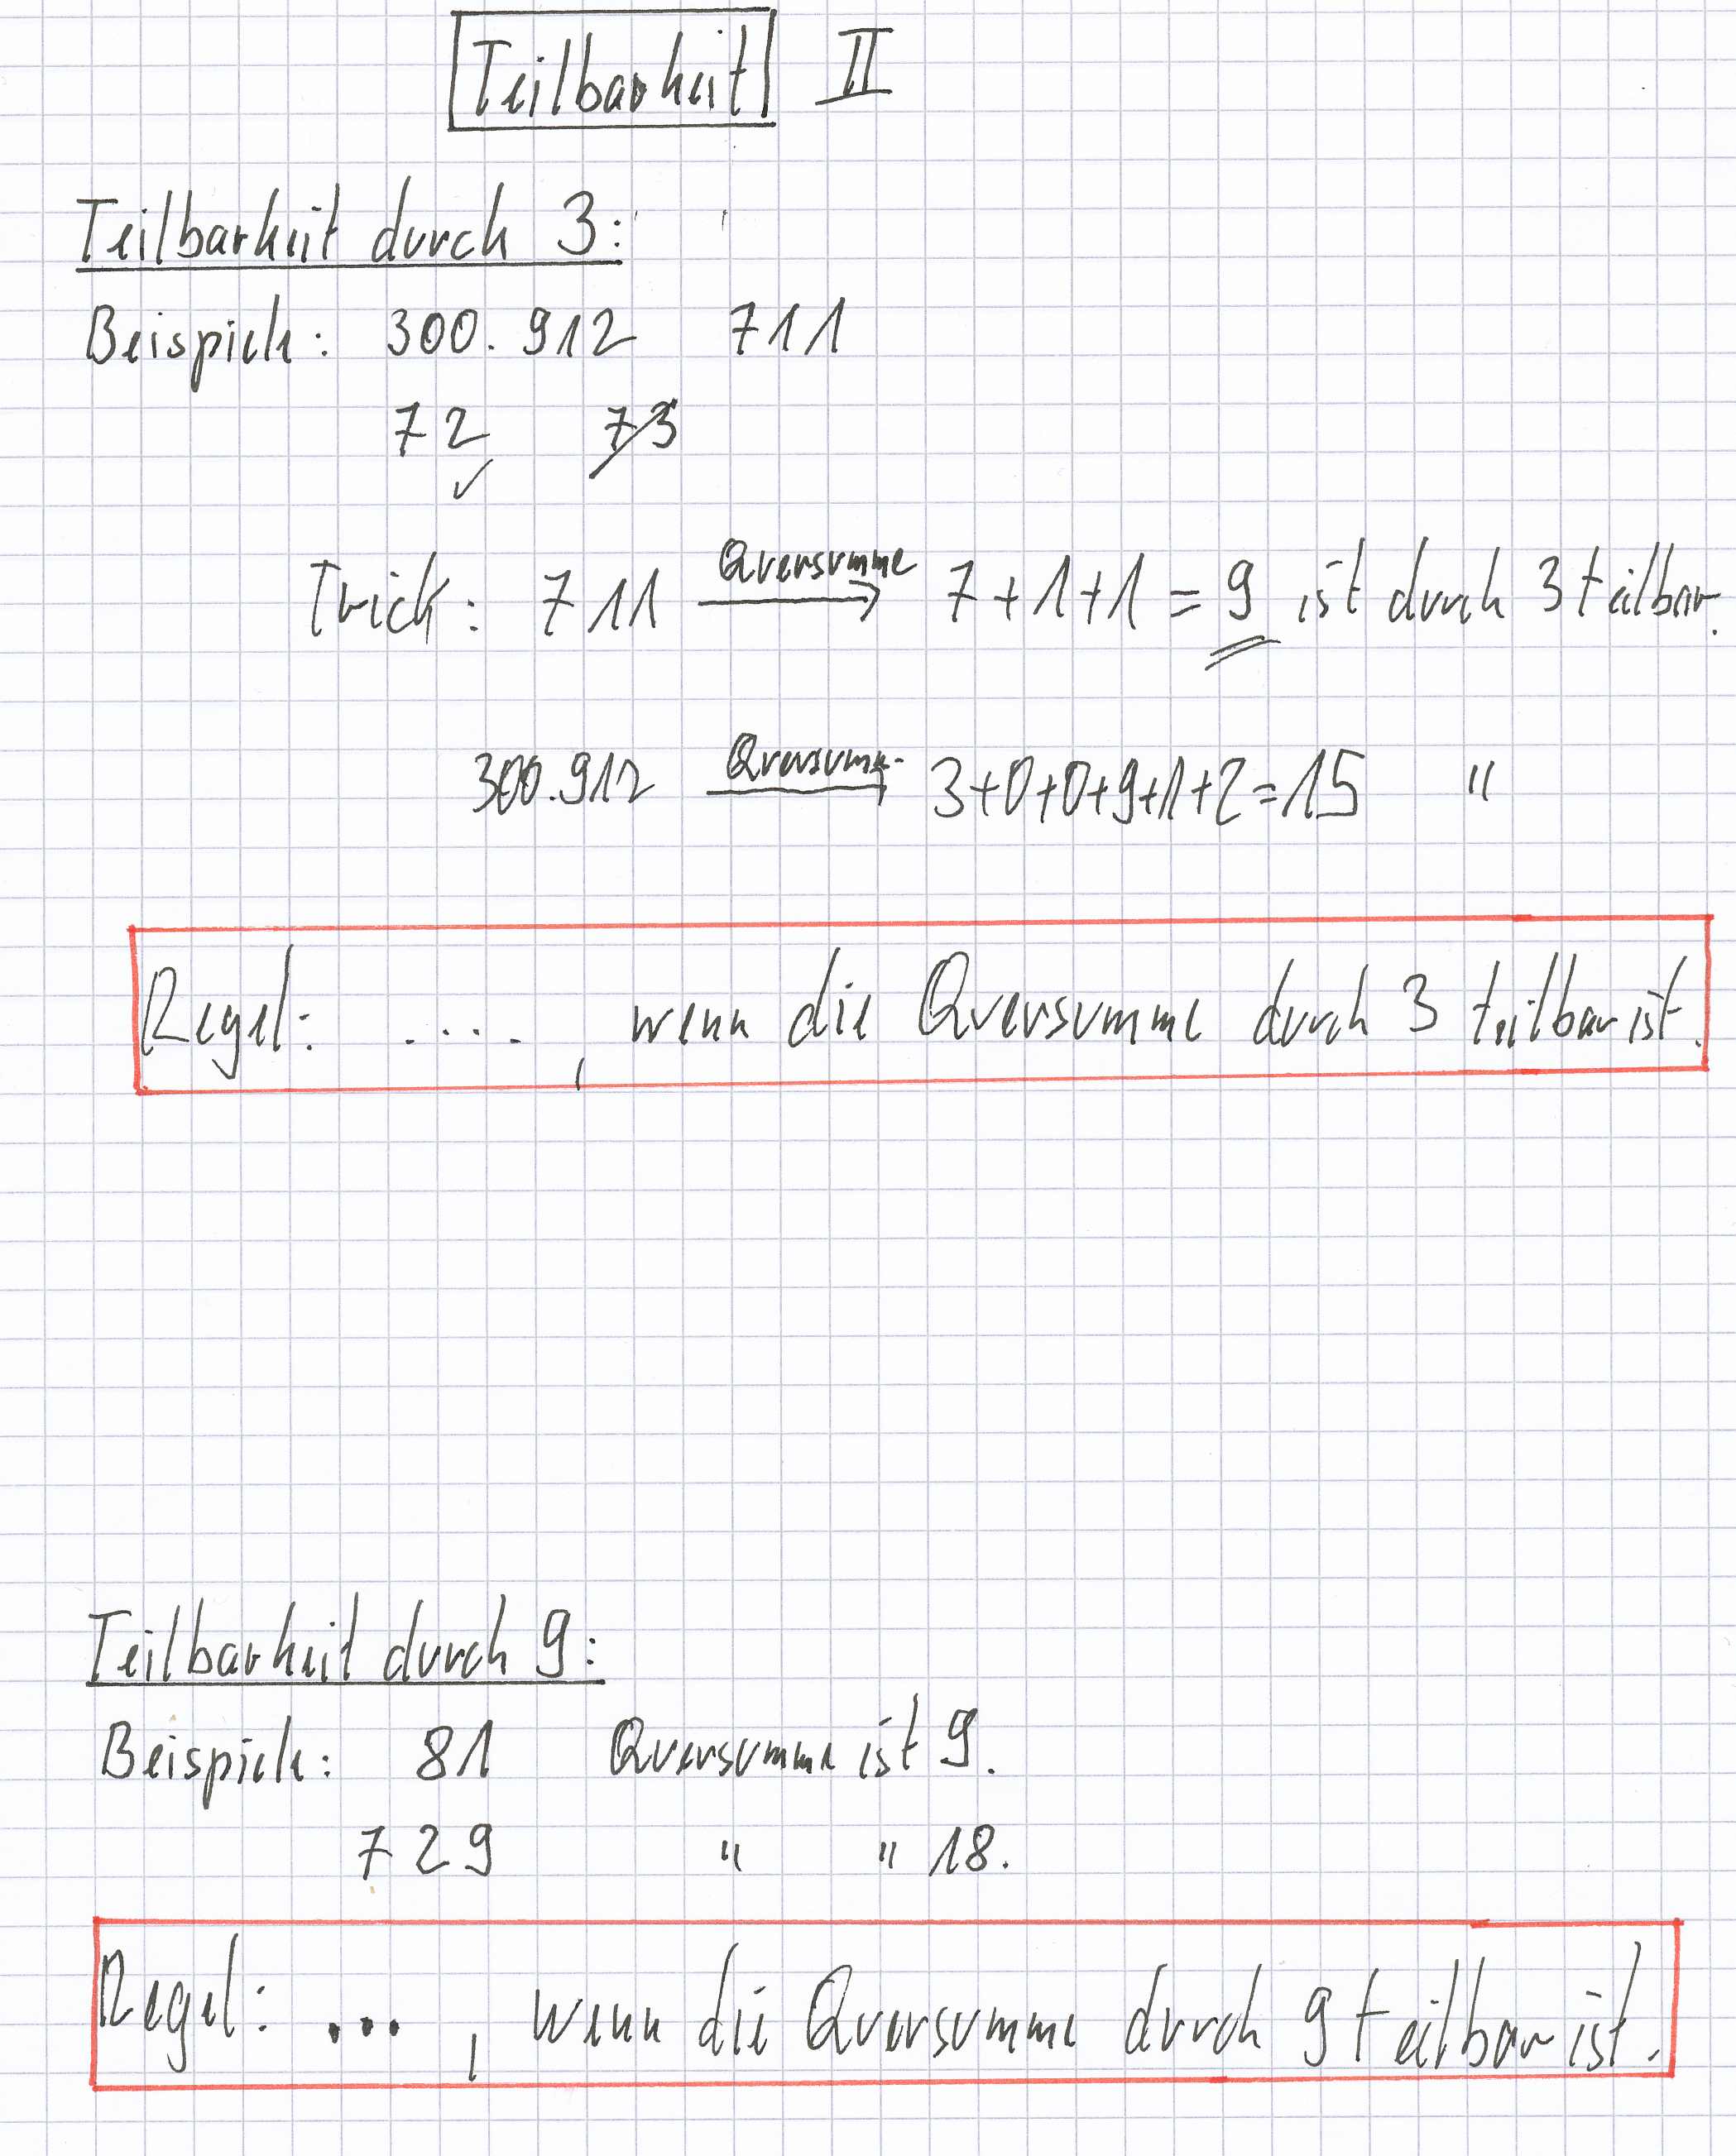 Teilbarkeit II
Teilbarkeit durch 3:
Beispiele: 300.912 711
72 73
✓
Trick: 711 Quersumme → 7+1+1=9 ist durch 3 teilbar.
300.912 Quersumme → 3+0+0+9+1+2=15 "
Regel: ...., wenn die Quersumme durch 3 teilbar ist.
Teilbarkeit durch 9:
Beispiele: 81 Quersumme ist 9.
729 " " 18.
Regel: ..., wenn die Quersumme durch 9 teilbar ist.